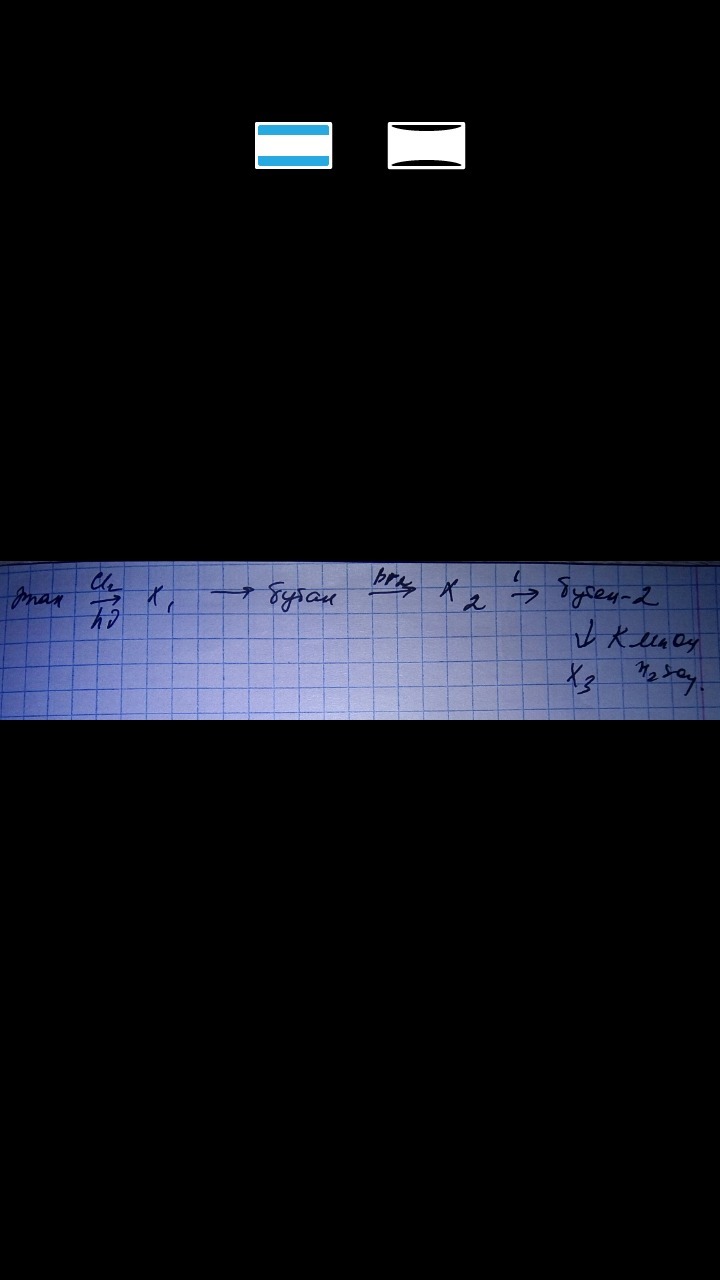 этан Cl₂ hν → X₁ → бутан Br₂ → X₂ → бутен-2
↓ KMnO₄
X₃ H₂SO₄.